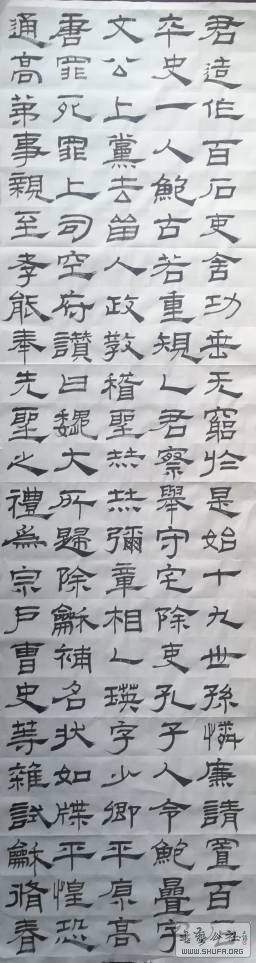 君造作百石吏舍功垂无窮於是始十九世孫憐廉請置百
卒史一人鮑古若重規乚君察舉守宅除吏孔子人令鮑疊字
文公上黨屯留人政教稽聖赫赫彌章相乚瑛字少卿平原高
唐罪死罪上司空府讃曰魏大所歸除龢補名狀如牒平惶恐
通高第事親至孝能奉先聖之禮為宗戶曹史等雜試龢脩春
WWW.SHUFA.ORG